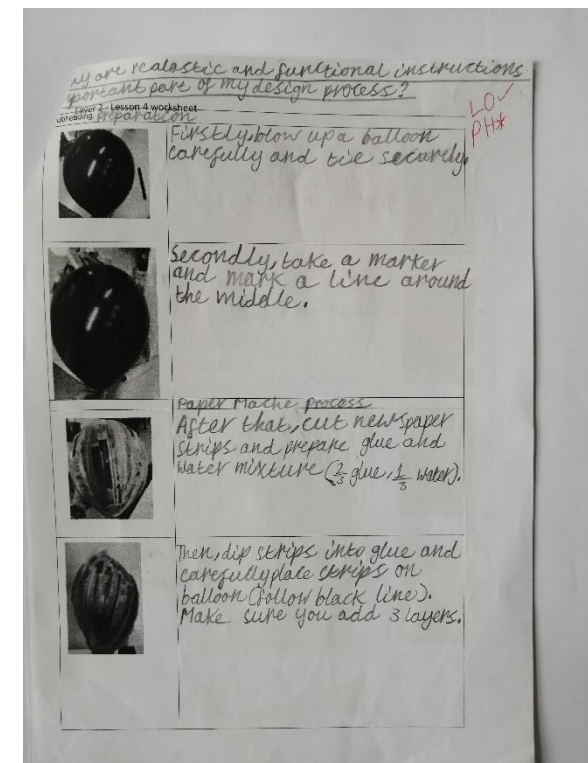 ny are realastic and functional instructions
portant part of my design process?
Layer 2 - Lesson 4 worksheet
ubheading: preparation
LO✓
PH*
Firstly, blow up a balloon
carefully and tie securely.
Secondly, take a marker
and mark a line around
the middle.
Paper Mache process
After that, cut newspaper
strips and prepare glue and
water mixture (2/3 glue, 1/3 water).
Then, dip strips into glue and
carefully place strips on
balloon (follow black line).
Make sure you add 3 layers.